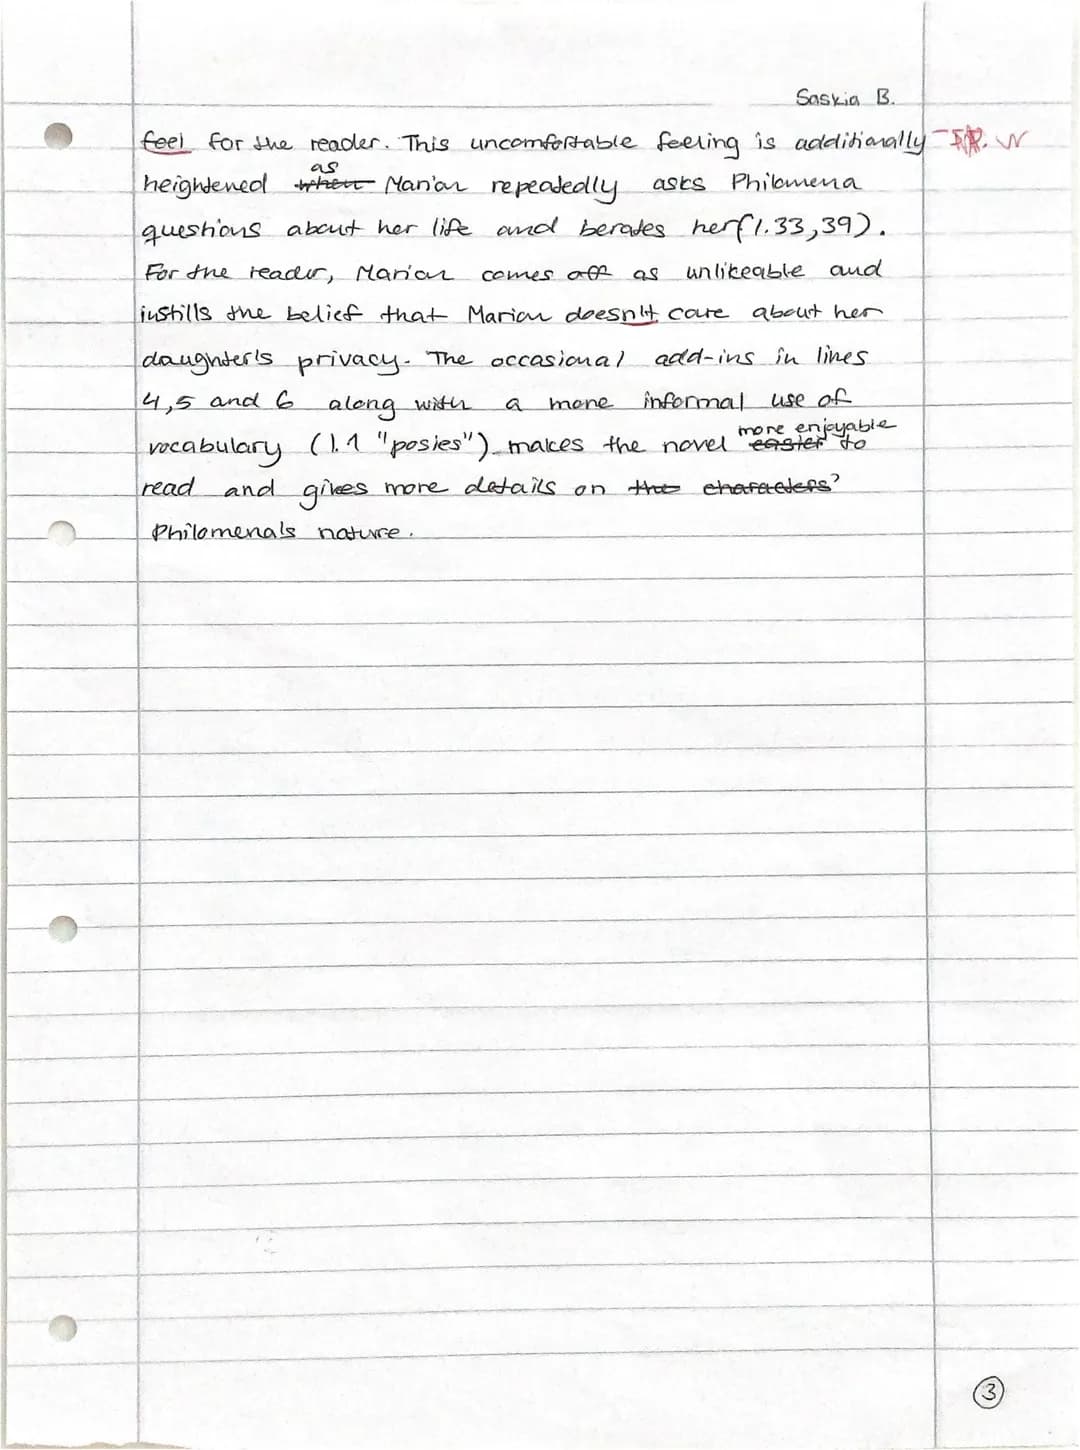 Saskia B.
feel for the reader. This uncomfortable feeling is additionally W
as
heightened when Marian repeatedly asks Philomena
questions about her life and berates her (l.33,39).
For the reader, Marian comes off as unlikeable and
instills the belief that Marian doesn't care about her
daughter's privacy. The occasional add-ins in lines
4,5 and 6 along with a more informal use of
more enjoyable
vocabulary (l.1 "posies") makes the novel easier to
read and gives more details on the characters'
Philomena's nature.
3